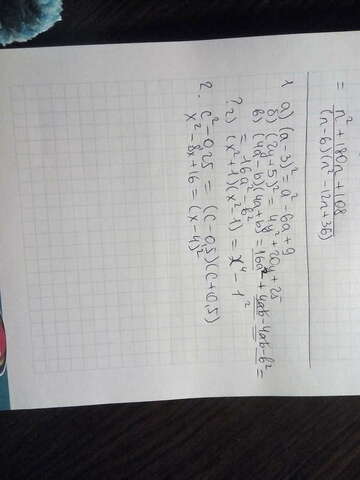 = n² + 180n² + 108 / (n-6)(n²-12n+36)
1 а) (a-3)² = a² - 6a + 9
б) (2y+5)² = 4y² + 20y + 25
в) (4a-b)(4a+b) = 16a² + 4ab - 4ab - b² =
= 16a² - b²
? г) (x²+1)(x²-1) = x⁴ - 1²
2. c² - 0,25 = (c-0,5)(c+0,5)
x² - 8x + 16 = (x-4)²